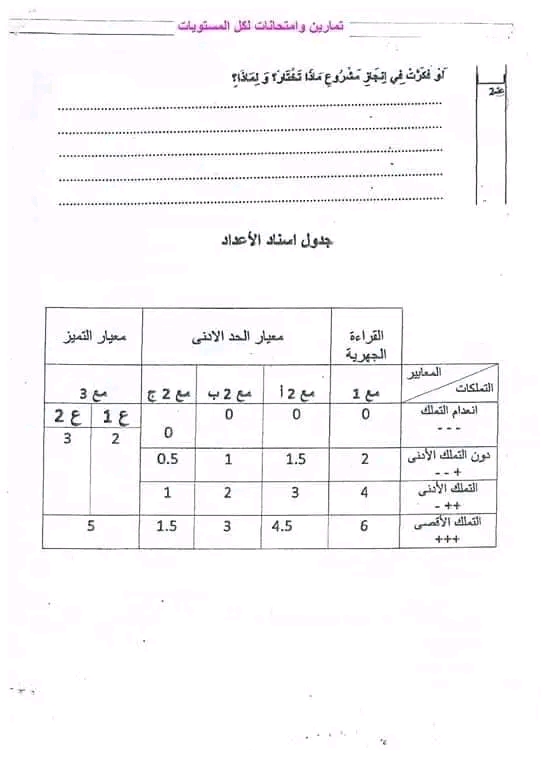 تمارين وامتحانات لكل المستويات
لَوْ فَكَّرْتَ فِي إِنْجَازِ مَشْرُوعٍ مَاذَا تَخْتَارُ؟ وَ لِمَاذَا؟
ع2
جدول اسناد الأعداد
القراءة الجهرية معيار الحد الادنى معيار التميز
المعايير
التملكات مع 1 مع 2 أ مع 2 ب مع 2 ج مع 3
انعدام التملك
- - - 0 0 0 0 ع 1 ع 2
دون التملك الأدنى
+ - - 2 1.5 1 0.5 2 3
التملك الأدنى
++ - 4 3 2 1
التملك الأقصى
+++ 6 4.5 3 1.5 5